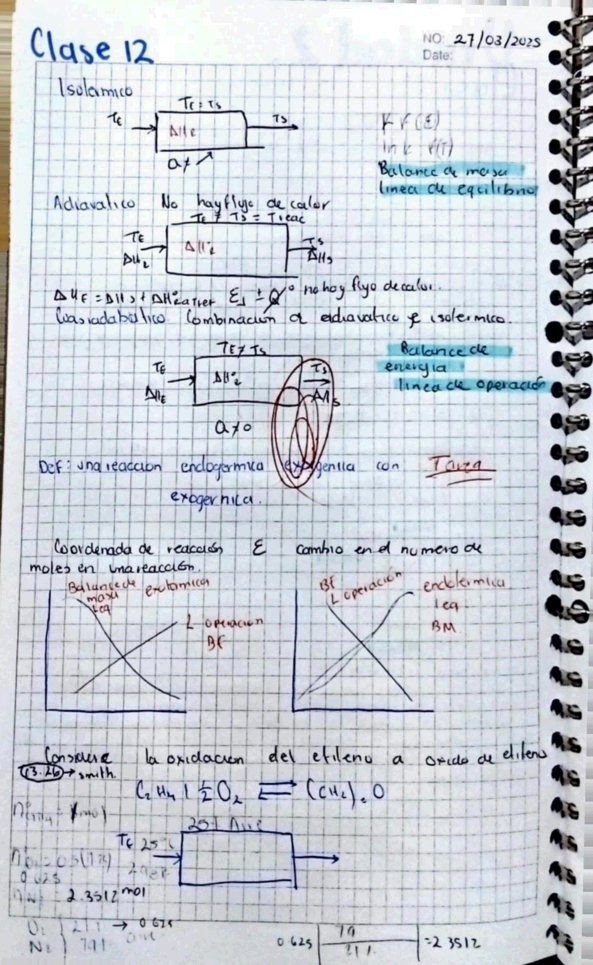 Clase 12
NO: 27/03/2025
Date:
Isotermico
TE = TS
TE
ΔHR
TS
Q≠
Balance de masa
linea de equilibrio
Adiavatico No hay flujo de calor
TE ≠ TS = Treac
TE
ΔH°2
TS
ΔH2
ΔHs
no hay flujo de calor.
Combinación a adiavatico e isotermico.
TE ≠ TS
Balance de
energia
TE
ΔH°2
TS
linea de operación
ΔHE
ΔHs
Q≠0
Def: una reaccion endogermica con Tarea
exogernica.
Coordenada de reacción ε cambio en el numero de
moles en una reacción.
Balance de
masa
Leq
exotermica
L operacion
BE
BE
L operación
endotermica
leq
BM
Considere la oxidacion del etileno a oxido de etileno
13.26 → smith.
C2H4 + ½O2 ⇌ (CH2)2O
25% Aire
TE 25°C
0.625
2.3512 mol
O2 21% → 0.625
N2 79%
0.625
79
21%
=2.3512